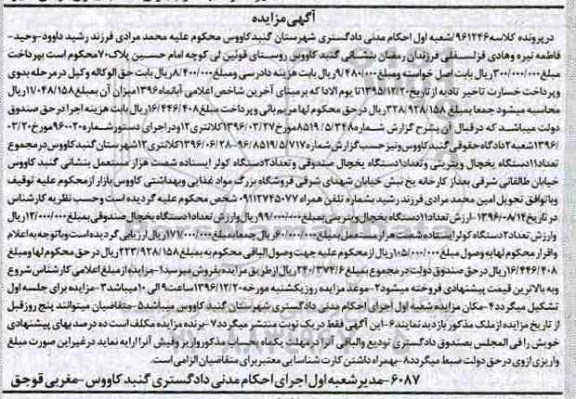 آگهی مزایده
درپرونده کلاسه ۹۶۱۲۴۶/شعبه اول احکام مدنی دادگستری شهرستان گنبدکاووس محکوم علیه محمد مرادی فرزند رشید داوود-وحید-
فاطمه تیره وهادی قزلسفلی فرزندان رمضان بنشانی گنبد کاووس روستای قوئین لی کوچه امام حسین پلاک ۷۰ محکوم است بپرداخت
مبلغ ۳۰۰/۰۰۰/۰۰۰ ریال بابت اصل خواسته ومبلغ ۹/۴۸۰/۰۰۰ ریال بابت هزینه دادرسی ومبلغ ۸/۴۰۰/۰۰۰ ریال بابت حق الوکاله وکیل در مرحله بدوی
وپرداخت خسارت تاخیر تادیه از تاریخ ۱۳۹۵/۱۲/۲۰ تا یوم الادا که بر مبنای آخرین شاخص اعلامی آبانماه ۱۳۹۶ میزان آن بمبلغ ۱۷/۰۴۸/۱۵۸ ریال
محاسبه میشود جمعا بمبلغ ۳۲۸/۹۲۸/۱۵۸ ریال در حق محکوم لها مریم بائی وپرداخت مبلغ ۱۶/۴۴۶/۴۰۸ ریال بابت هزینه اجرا در حق صندوق
دولت میباشد که در قبال آن بشرح گزارش شماره ۸۵۱۹/۵/۳۴۸ مورخ ۱۳۹۶/۰۳/۲۷ کلانتری ۱۲ ودر اجرای دستور شماره ۹۶۰۰۲۰ مورخ ۰۳/۲۰/
۱۳۹۶ شعبه ۲ دادگاه حقوقی گنبدکاووس ونیز حسب گزارش شماره ۹۶/۸۵۱۹/۵/۷۱۷-۱۳۹۶/۰۶/۲۸ کلانتری ۱۲ شهرستان گنبدکاووس در مجموع
تعداد ۱۱ دستگاه یخچال ویترینی و تعداد ۱ دستگاه یخچال صندوقی و تعداد ۲ دستگاه کولر ایستاده شصت هزار مستعمل بنشانی گنبد کاووس
خیابان طالقانی شرقی بعداز کارخانه یخ نبش خیابان شهدای شرقی فروشگاه بزرگ مواد غذایی وبهداشتی کاووس بازار از محکوم علیه توقیف
وباتوافق تحویل امین محمد مرادی فرزند رشید بشماره تلفن همراه ۰۹۱۱۲۷۴۵۰۷۷ شخص محکوم علیه گردیده است وحسب نظریه کارشناس
در تاریخ ۱۳۹۶/۰۸/۱۴-ارزش تعداد ۱۱ دستگاه یخچال ویترینی بمبلغ ۹۹/۰۰۰/۰۰۰ ریال وارزش تعداد ۱ دستگاه یخچال صندوقی بمبلغ ۱۲/۰۰۰/۰۰۰ ریال
وارزش تعداد ۲ دستگاه کولر ایستاده شصت هزار مستعمل بمبلغ ۶۰/۰۰۰/۰۰۰ ریال جمعا بمبلغ ۱۷۷/۰۰۰/۰۰۰ ریال ارزیابی گردیده است وباتوجه به اعلام
واقرار محکوم لها به وصول مبلغ ۱۰۵/۰۰۰/۰۰۰ ریال از محکوم علیه جهت وصول الباقی محکوم به بمبلغ ۲۲۳/۹۲۸/۱۵۸ ریال در حق محکوم لها ومبلغ
۱۶/۴۴۶/۴۰۸ ریال در حق صندوق دولت در مجموع بمبلغ ۲۴۰/۳۷۴/۶ ریال از طریق مزایده بفروش میرسد ۱-مزایده از مبلغ اعلامی کارشناس شروع
وبه بالاترین قیمت پیشنهادی فروخته میشود ۲-موعد مزایده روز یکشنبه مورخه ۱۳۹۶/۱۲/۲۰ ساعت ۹ الی ۱۰ میباشد ۳-مزایده برای جلسه اول
تشکیل میگردد ۴-مکان مزایده شعبه اول اجرای احکام مدنی دادگستری شهرستان گنبد کاووس میباشد ۵-متقاضیان میتوانند پنج روز قبل
از تاریخ مزایده از ملک مذکور بازدید نمایند ۶-این آگهی فقط در یک نوبت منتشر میگردد ۷-برنده مزایده مکلف است ده درصد بهای پیشنهادی
خویش را فی المجلس بصندوق دادگستری تودیع والباقی آنرا در مهلت یکماه بحساب مذکور واریز وفیش آنرا ارایه نماید در غیر این صورت مبلغ
واریزی ازوی در حق دولت ضبط میگردد ۸-بهمراه داشتن کارت شناسایی معتبر برای متقاضیان الزامی است.
۶۰۸۷-مدیر شعبه اول اجرای احکام مدنی دادگستری گنبد کاووس-مغربی قوجق